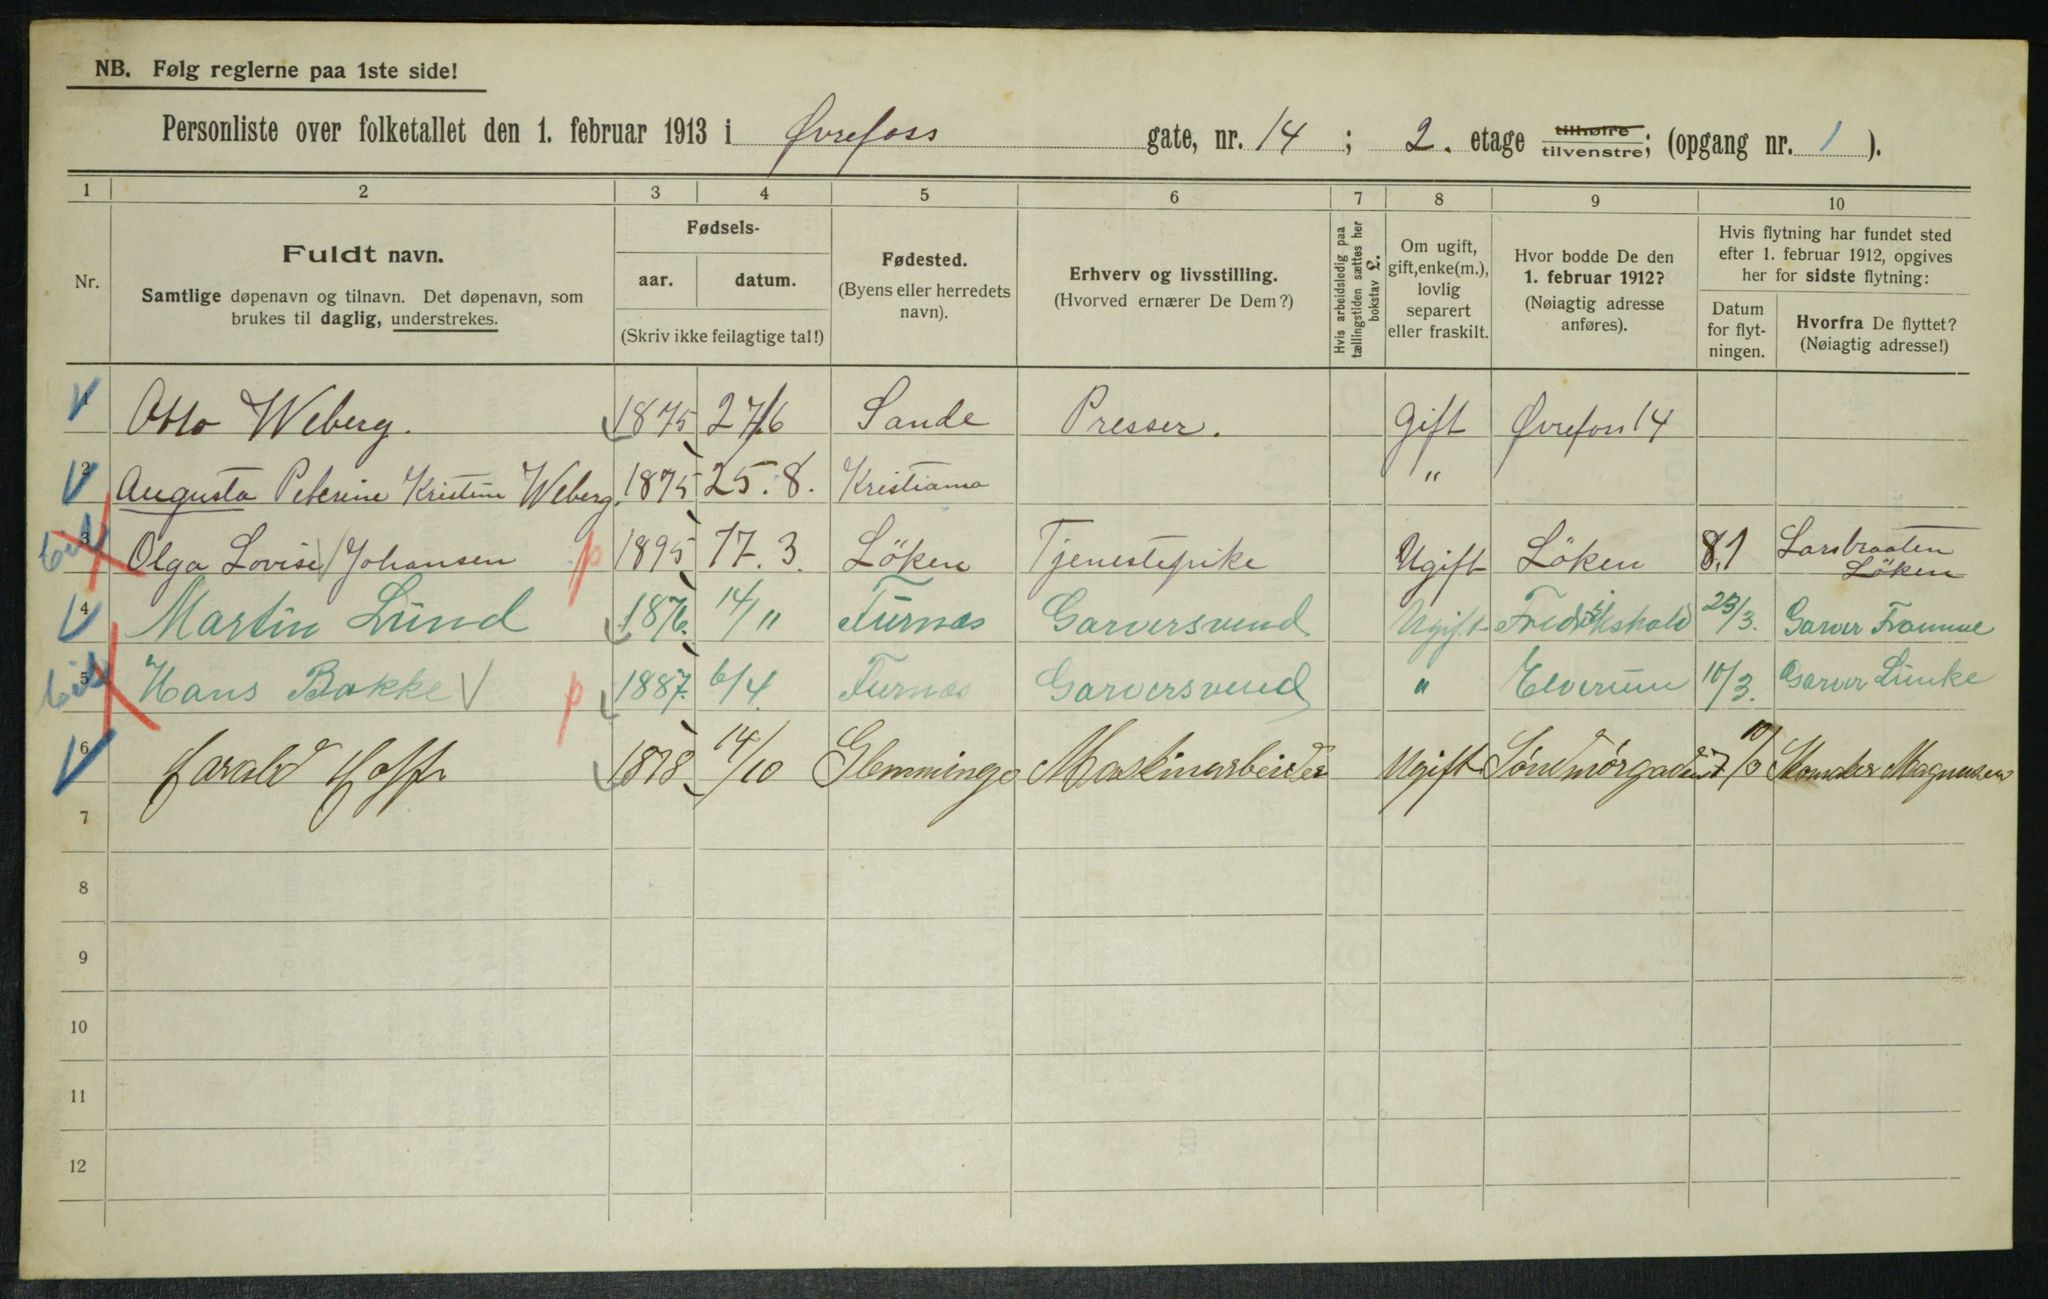 NB. Følg reglerne paa 1ste side!
Personliste over folketallet den 1. februar 1913 i Øvrefoss gate, nr. 14 ; 2. etage tilhøire tilvenstre; (opgang nr. 1 ).
1 2 3 4 5 6 7 8 9 10
Nr.
Fuldt navn.
Samtlige døpenavn og tilnavn. Det døpenavn, som
brukes til daglig, understrekes.
Fødsels-
aar. datum.
(Skriv ikke feilagtige tal!)
Fødested.
(Byens eller herredets
navn).
Erhverv og livsstilling.
(Hvorved ernærer De Dem?)
Hvis arbeidsledig paa
tællingstiden sættes her
bokstav L.
Om ugift,
gift, enke(m.),
lovlig
separert
eller fraskilt.
Hvor bodde De den
1. februar 1912?
(Nøiagtig adresse
anføres).
Hvis flytning har fundet sted
efter 1. februar 1912, opgives
her for sidste flytning:
Datum
for flyt-
ningen.
Hvorfra De flyttet?
(Nøiagtig adresse!)
Otto Weberg. 1875 27/6 Sande Presser. Gift Øvrefoss 14
2 Augusta Petrine Kristine Weberg. 1875 25.8. Kristiania "
3 Olga Lovise Johansen p 1895 17.3. Löken Tjenestepike Ugift Löken 8.1 Larsbraaten
Löken
4 Martin Lund 1876. 14/11 Furnæs Garversvend Ugift Fredrikshald 23/3. Garver
5 Hans Bakke p 1887. 6/4. Furnæs Garversvend " Elverum 10/3. Garver Lunke
6 Harald Hoff 1878 14/10 Glemminge Maskinarbeider Ugift Magnusen
7
8
9
10
11
12